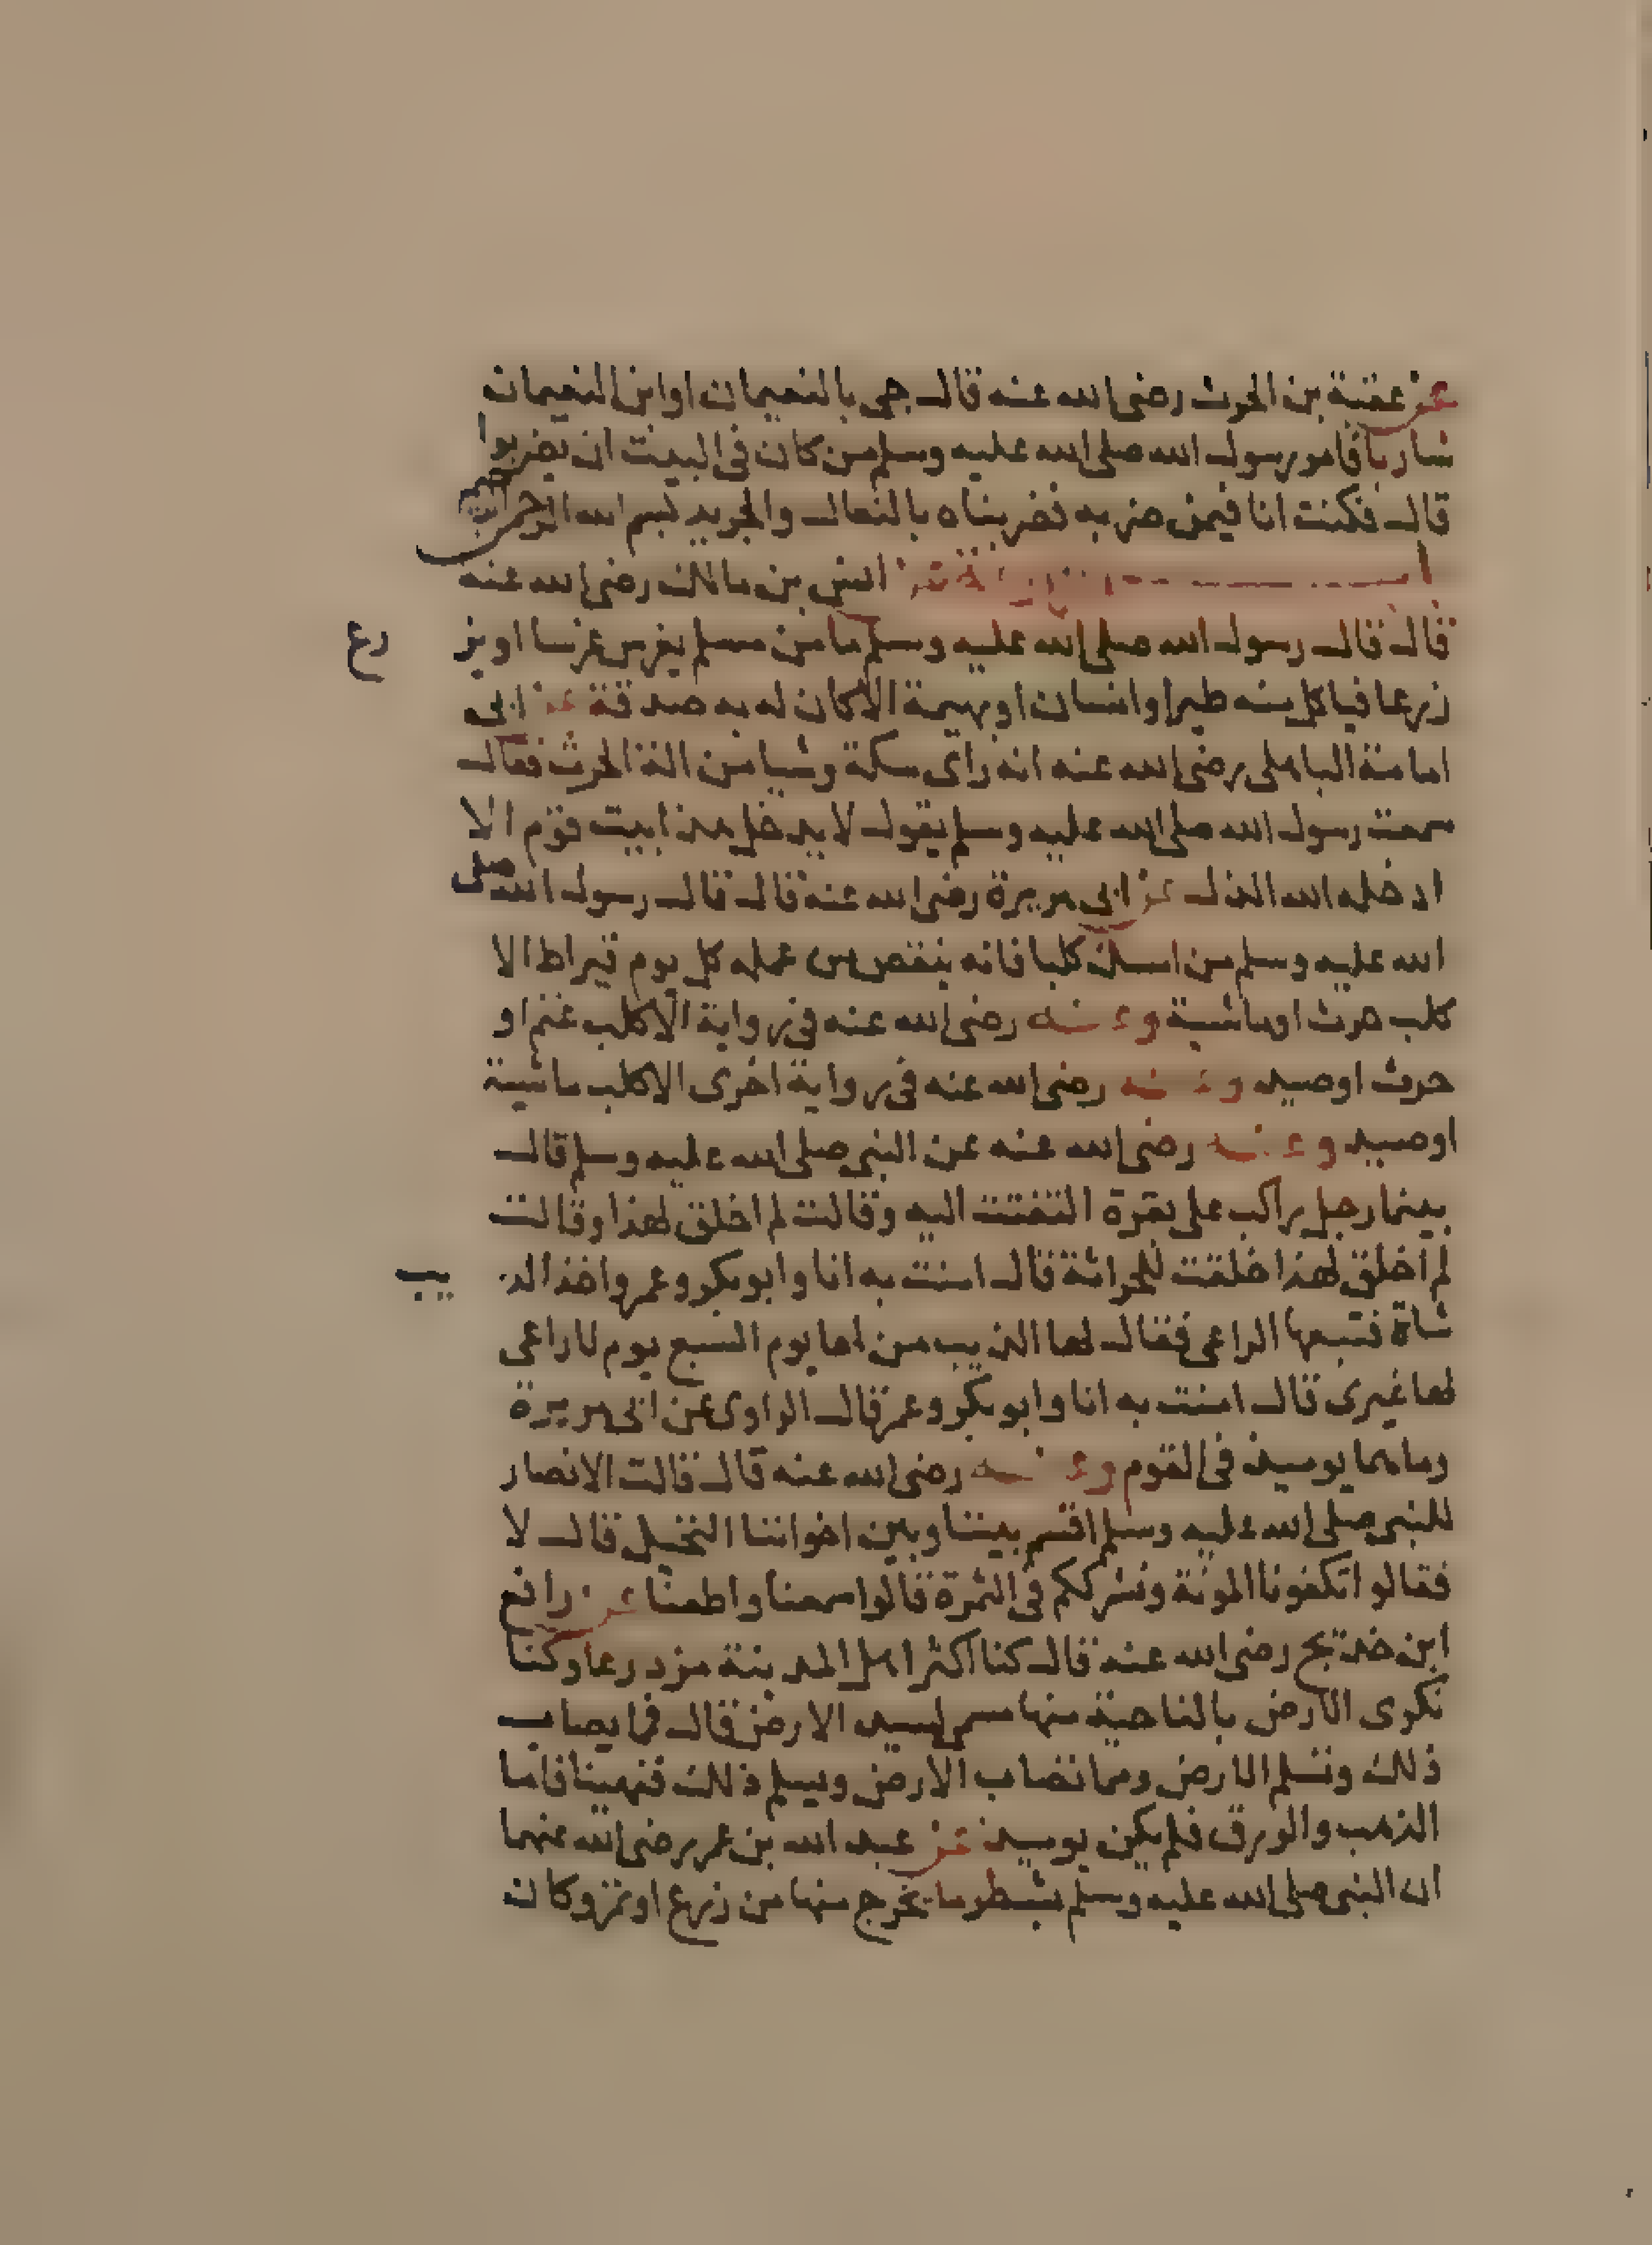 عن عقبة بن الحرث رضى الله عنه قال جى بالنعيمان او ابن النعيمان
شاربا فامر رسول الله صلى الله عليه وسلم من كان فى البيت ان يضربوا
قال فكنت انا فيمن ضربه فضربناه بالنعال والجريد بسم الله الرحمن
انس بن مالك رضى الله عنه
قال قال رسول الله صلى الله عليه وسلم ما من مسلم يغرس غرسا او يز
رع
زرعا فياكل منه طير او انسان او بهيمة الا كان له به صدقة عن ابى
امامة الباهلى رضى الله عنه انه راى سكة وشيا من الة الحرث فقال
سمعت رسول الله صلى الله عليه وسلم يقول لا يدخل هذا بيت قوم الا
ادخله الله الذل عن ابى هريرة رضى الله عنه قال قال رسول الله صلى
الله عليه وسلم من امسك كلبا فانه ينقص من عمله كل يوم قيراط الا
كلب حرث او ماشية وعنه رضى الله عنه فى رواية الا كلب غنم او
حرث او صيد وعنه رضى الله عنه فى رواية اخرى الا كلب ماشية
او صيد وعنه رضى الله عنه عن النبى صلى الله عليه وسلم قال
بينما رجل راكب على بقرة التفتت اليه وقالت لم اخلق لهذا وقالت
لم اخلق لهذا خلقت للحراثة قال امنت به انا وابو بكر وعمر واخذ الذ
يب
شاة فتبعها الراعى فقال لها الذيب من لها يوم السبع يوم لا راعى
لها غيرى قال امنت به انا وابو بكر وعمر قال الراوى عن ابى هريرة
وما هما يوميذ فى القوم وعنه رضى الله عنه قال قالت الانصار
للنبى صلى الله عليه وسلم اقسم بيننا وبين اخواننا النخيل قال لا
فقالوا اتكفونا المونة ونشرككم فى الثمرة قالوا سمعنا واطعنا عن رافع
ابن خديج رضى الله عنه قال كنا اكثر اهل المدينة مزدرعا وكنا
نكرى الارض بالناحية منها مسمى لسيد الارض قال فما يصاب
ذلك وتسلم الارض ومما تصاب الارض ويسلم ذلك فنهينا فاما
الذهب والورق فلم يكن يوميذ عن عبد الله بن عمر رضى الله عنهما
ان النبى صلى الله عليه وسلم بشطر ما يخرج منها من زرع او ثمر وكان